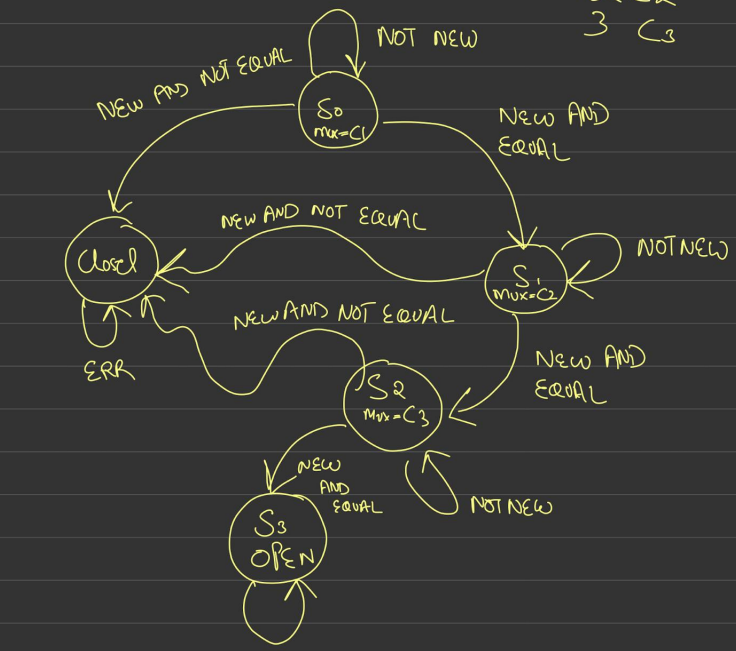 3 C3
NOT NEW
NEW AND NOT EQUAL
S0
MUX=C1
NEW AND
EQUAL
NEW AND NOT EQUAL
NOT NEW
Closed
S1
MUX=C2
NEW AND NOT EQUAL
ERR
NEW AND
EQUAL
S2
MUX=C3
NEW
AND
EQUAL
NOT NEW
S3
OPEN